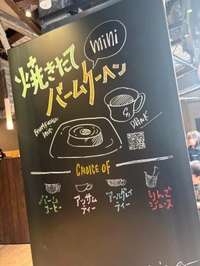 焼きたて
mini
バームクーヘン
DRINK
CHOICE OF
バーム
コーヒー
アッサム
ティー
アールグレイ
ティー
りんご
ジュース